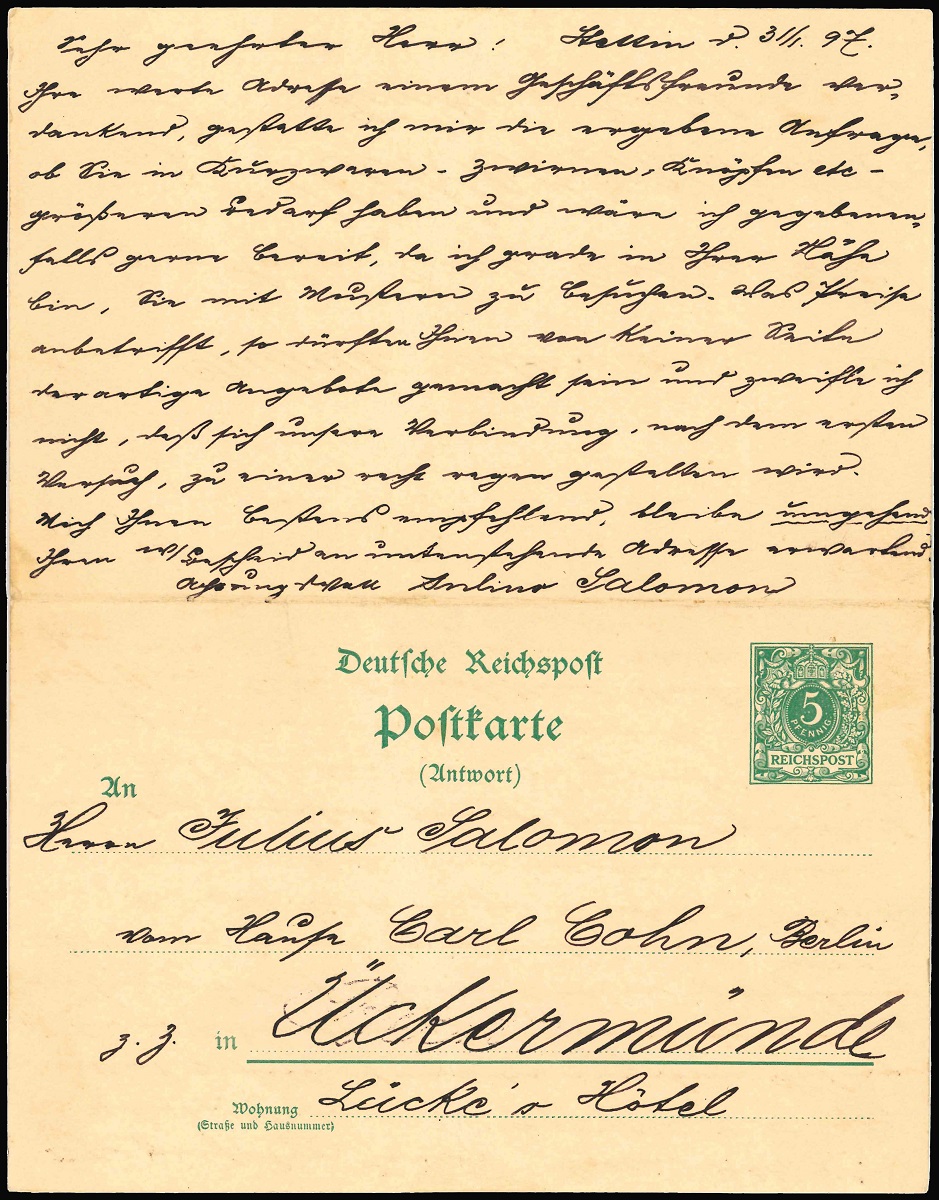 Sehr geehrter Herr! Stettin d. 3/1. 97.
Ihre werte Adresse einem Geschäftsfreunde ver-
dankend, gestatte ich mir die ergebene Anfrage,
ob Sie in Kurzwaren - Zwirnen, Knöpfen etc -
größeren Bedarf haben und wäre ich gegebenen-
falls gerne bereit, da ich grade in Ihrer Nähe
bin, Sie mit Mustern zu besuchen. Was Preise
anbetrifft, so dürften Ihnen von keiner Seite
derartige Angebote gemacht sein und zweifle ich
nicht, daß sich unsere Verbindung, nach dem ersten
Versuch, zu einer recht regen gestalten wird.
Mich Ihnen bestens empfehlend, bleibe umgehend
Ihren w/ Bescheid an untenstehende Adresse erwartend.
Achtungsvoll Julius Salomon
Deutsche Reichspost
Postkarte
(Antwort)
5
PFENNIG
REICHSPOST
An
Herrn Julius Salomon
vom Hause Carl Cohn, Berlin
z. Z. in Ückermünde
Wohnung Lücke's Hôtel
(Straße und Hausnummer)